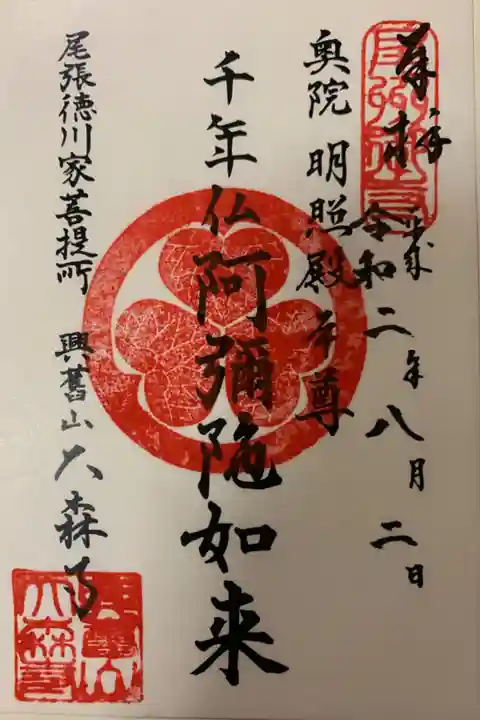 奉拝
令和二年八月二日
奥院 明照殿本尊
千年仏阿彌陀如来
尾張徳川家菩提所 興舊山大森寺